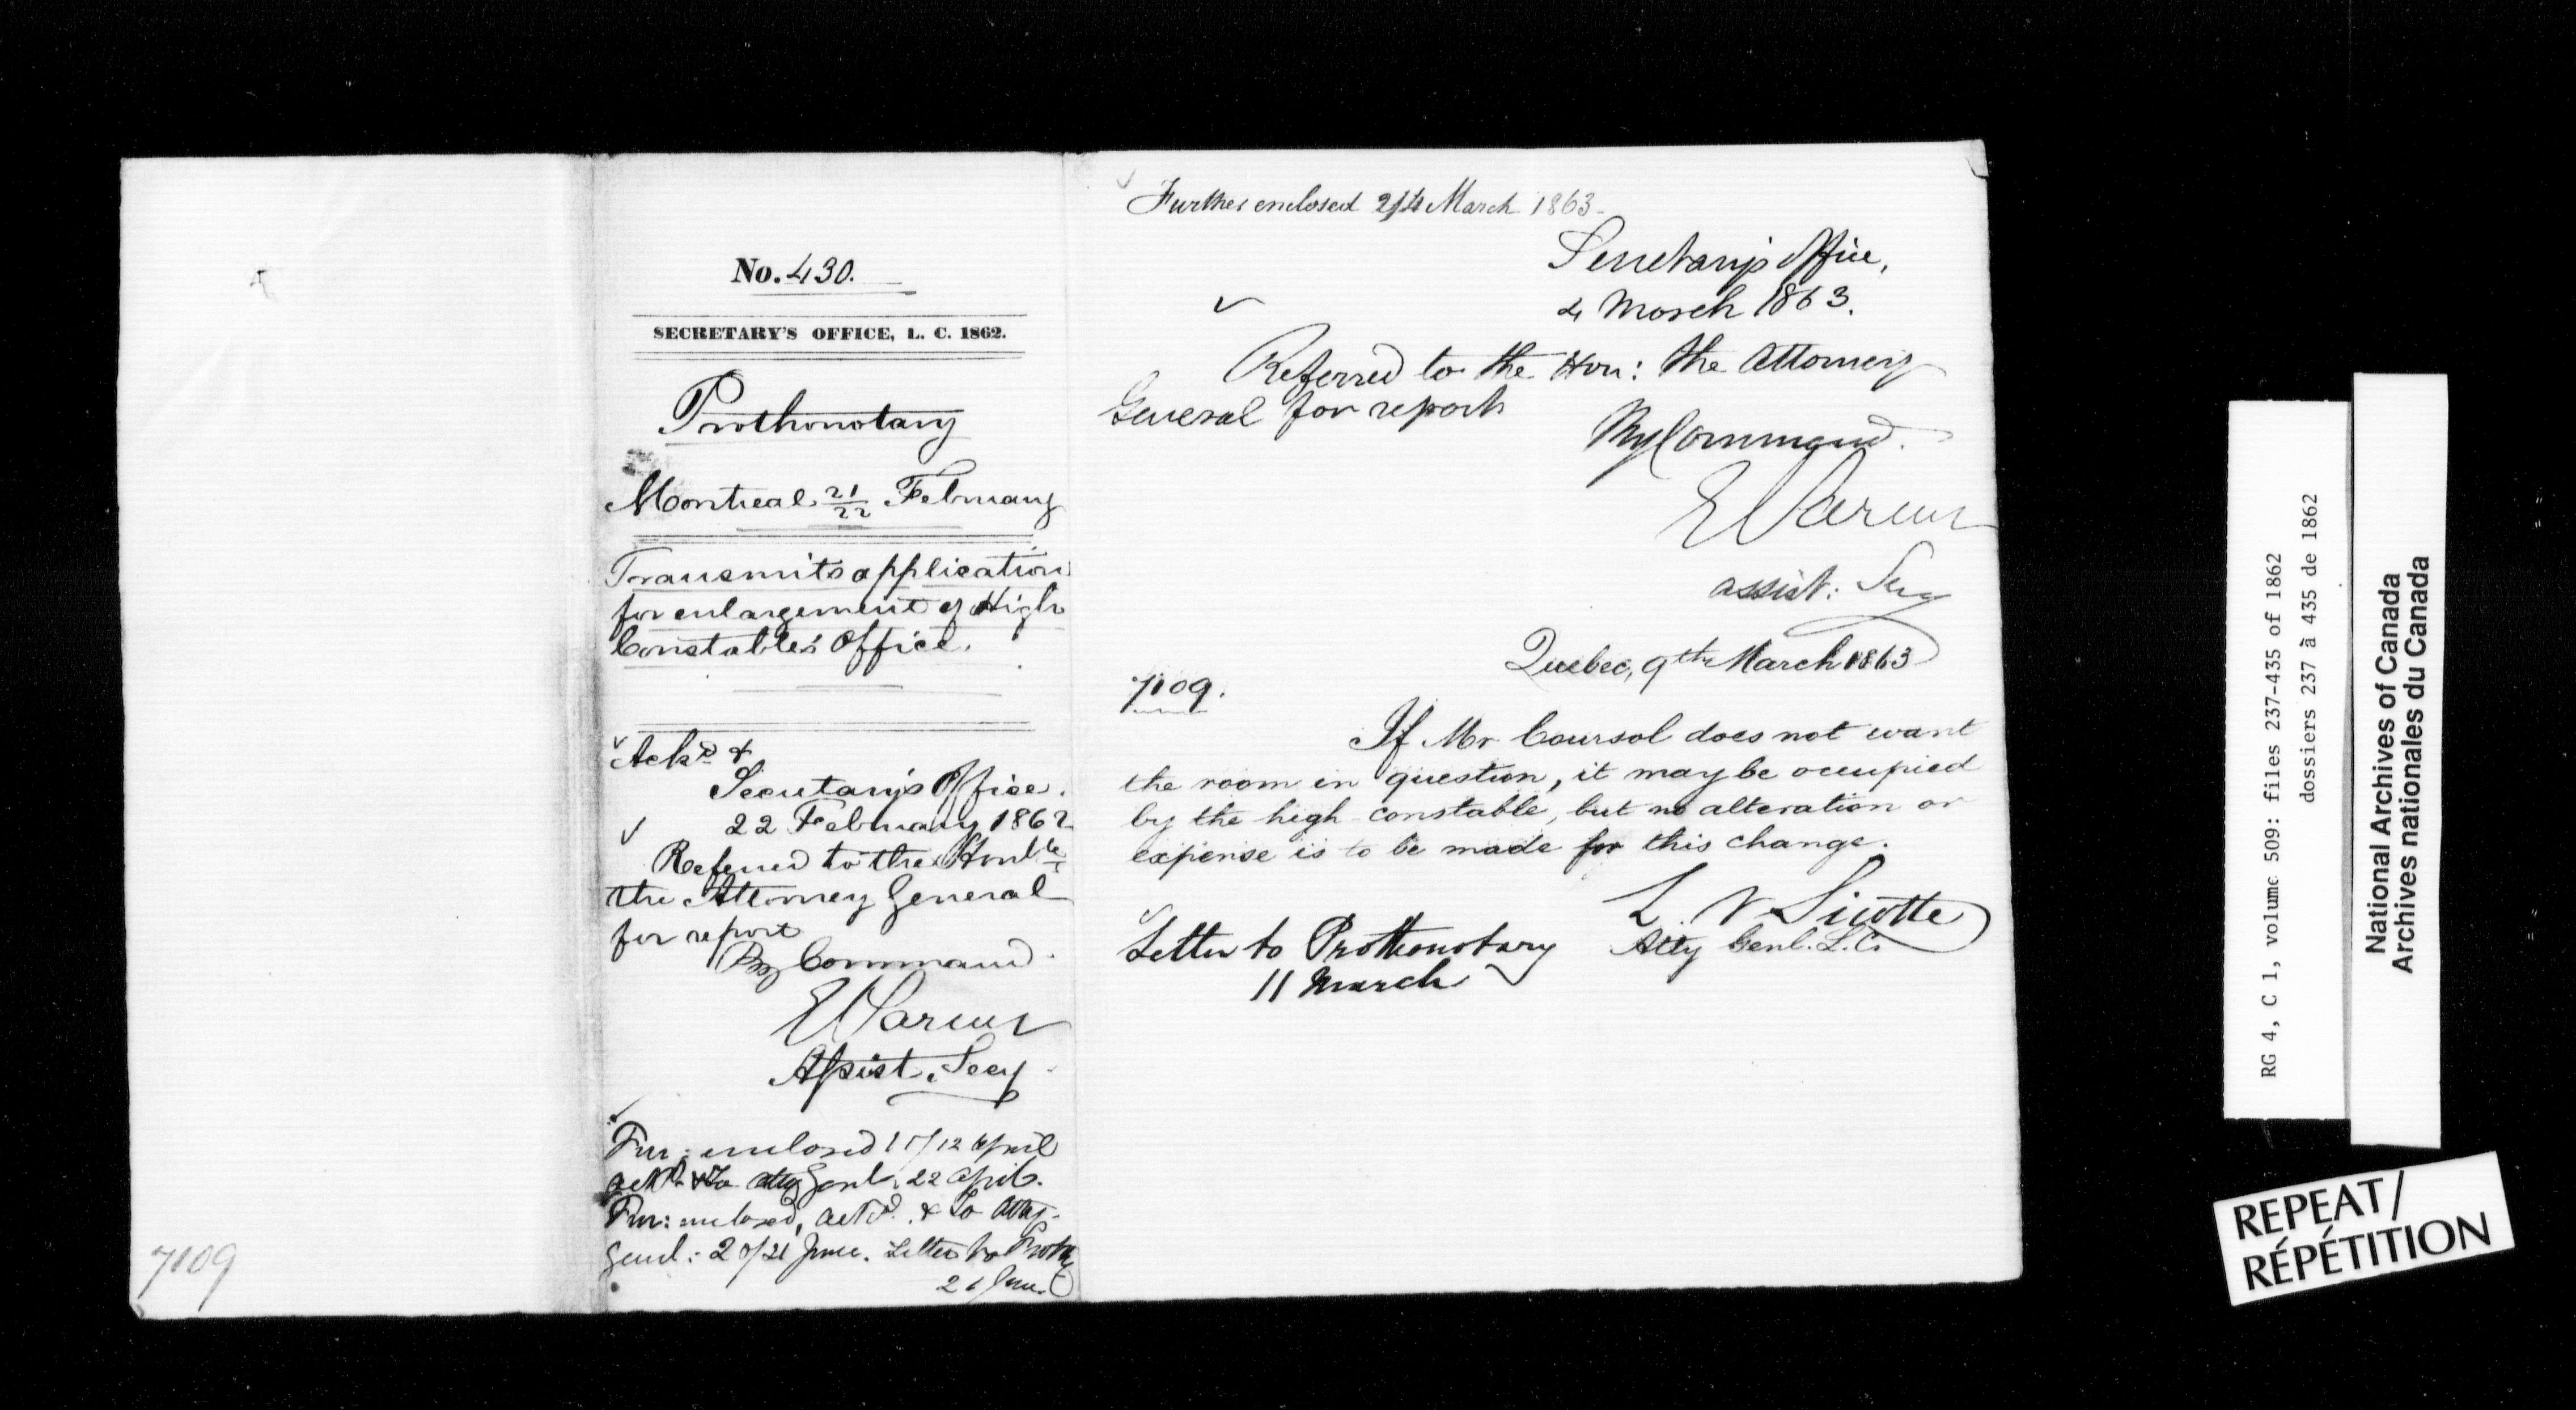 No. 430.
SECRETARY'S OFFICE, L. C. 1862.
Prothonotary
Montreal 21/22 February
Transmits application
for enlargement of High
Constable's Office.
Ackd &
Secretary's Office.
22 February 1862
Referred to the Honble
the Attorney General
for report
By Command.
E Parent
Assist. Secy
Fur: enclosed 11/12 April
ackd. & To Atty Genl. 22 April.
Fur: enclosed, ackd. & To Atty.
Genl: 20/21 June. Letter to Prothy
21 June
7109
Further enclosed 2/4 March 1863.
Secretary's Office,
4 March 1863.
Referred to the Hon: the Attorney
General for report
By Command.
E Parent
assist: Secy
Quebec, 9th March 1863
7109.
If Mr Coursol does not want
the room in question, it may be occupied
by the high-constable, but no alteration or
expense is to be made for this change.
L. V Sicotte
Atty Genl. L. C.
Letter to Prothonotary
11 March
RG 4, C 1, volume 509: files 237-435 of 1862
dossiers 237 à 435 de 1862
National Archives of Canada
Archives nationales du Canada
REPEAT/
RÉPÉTITION